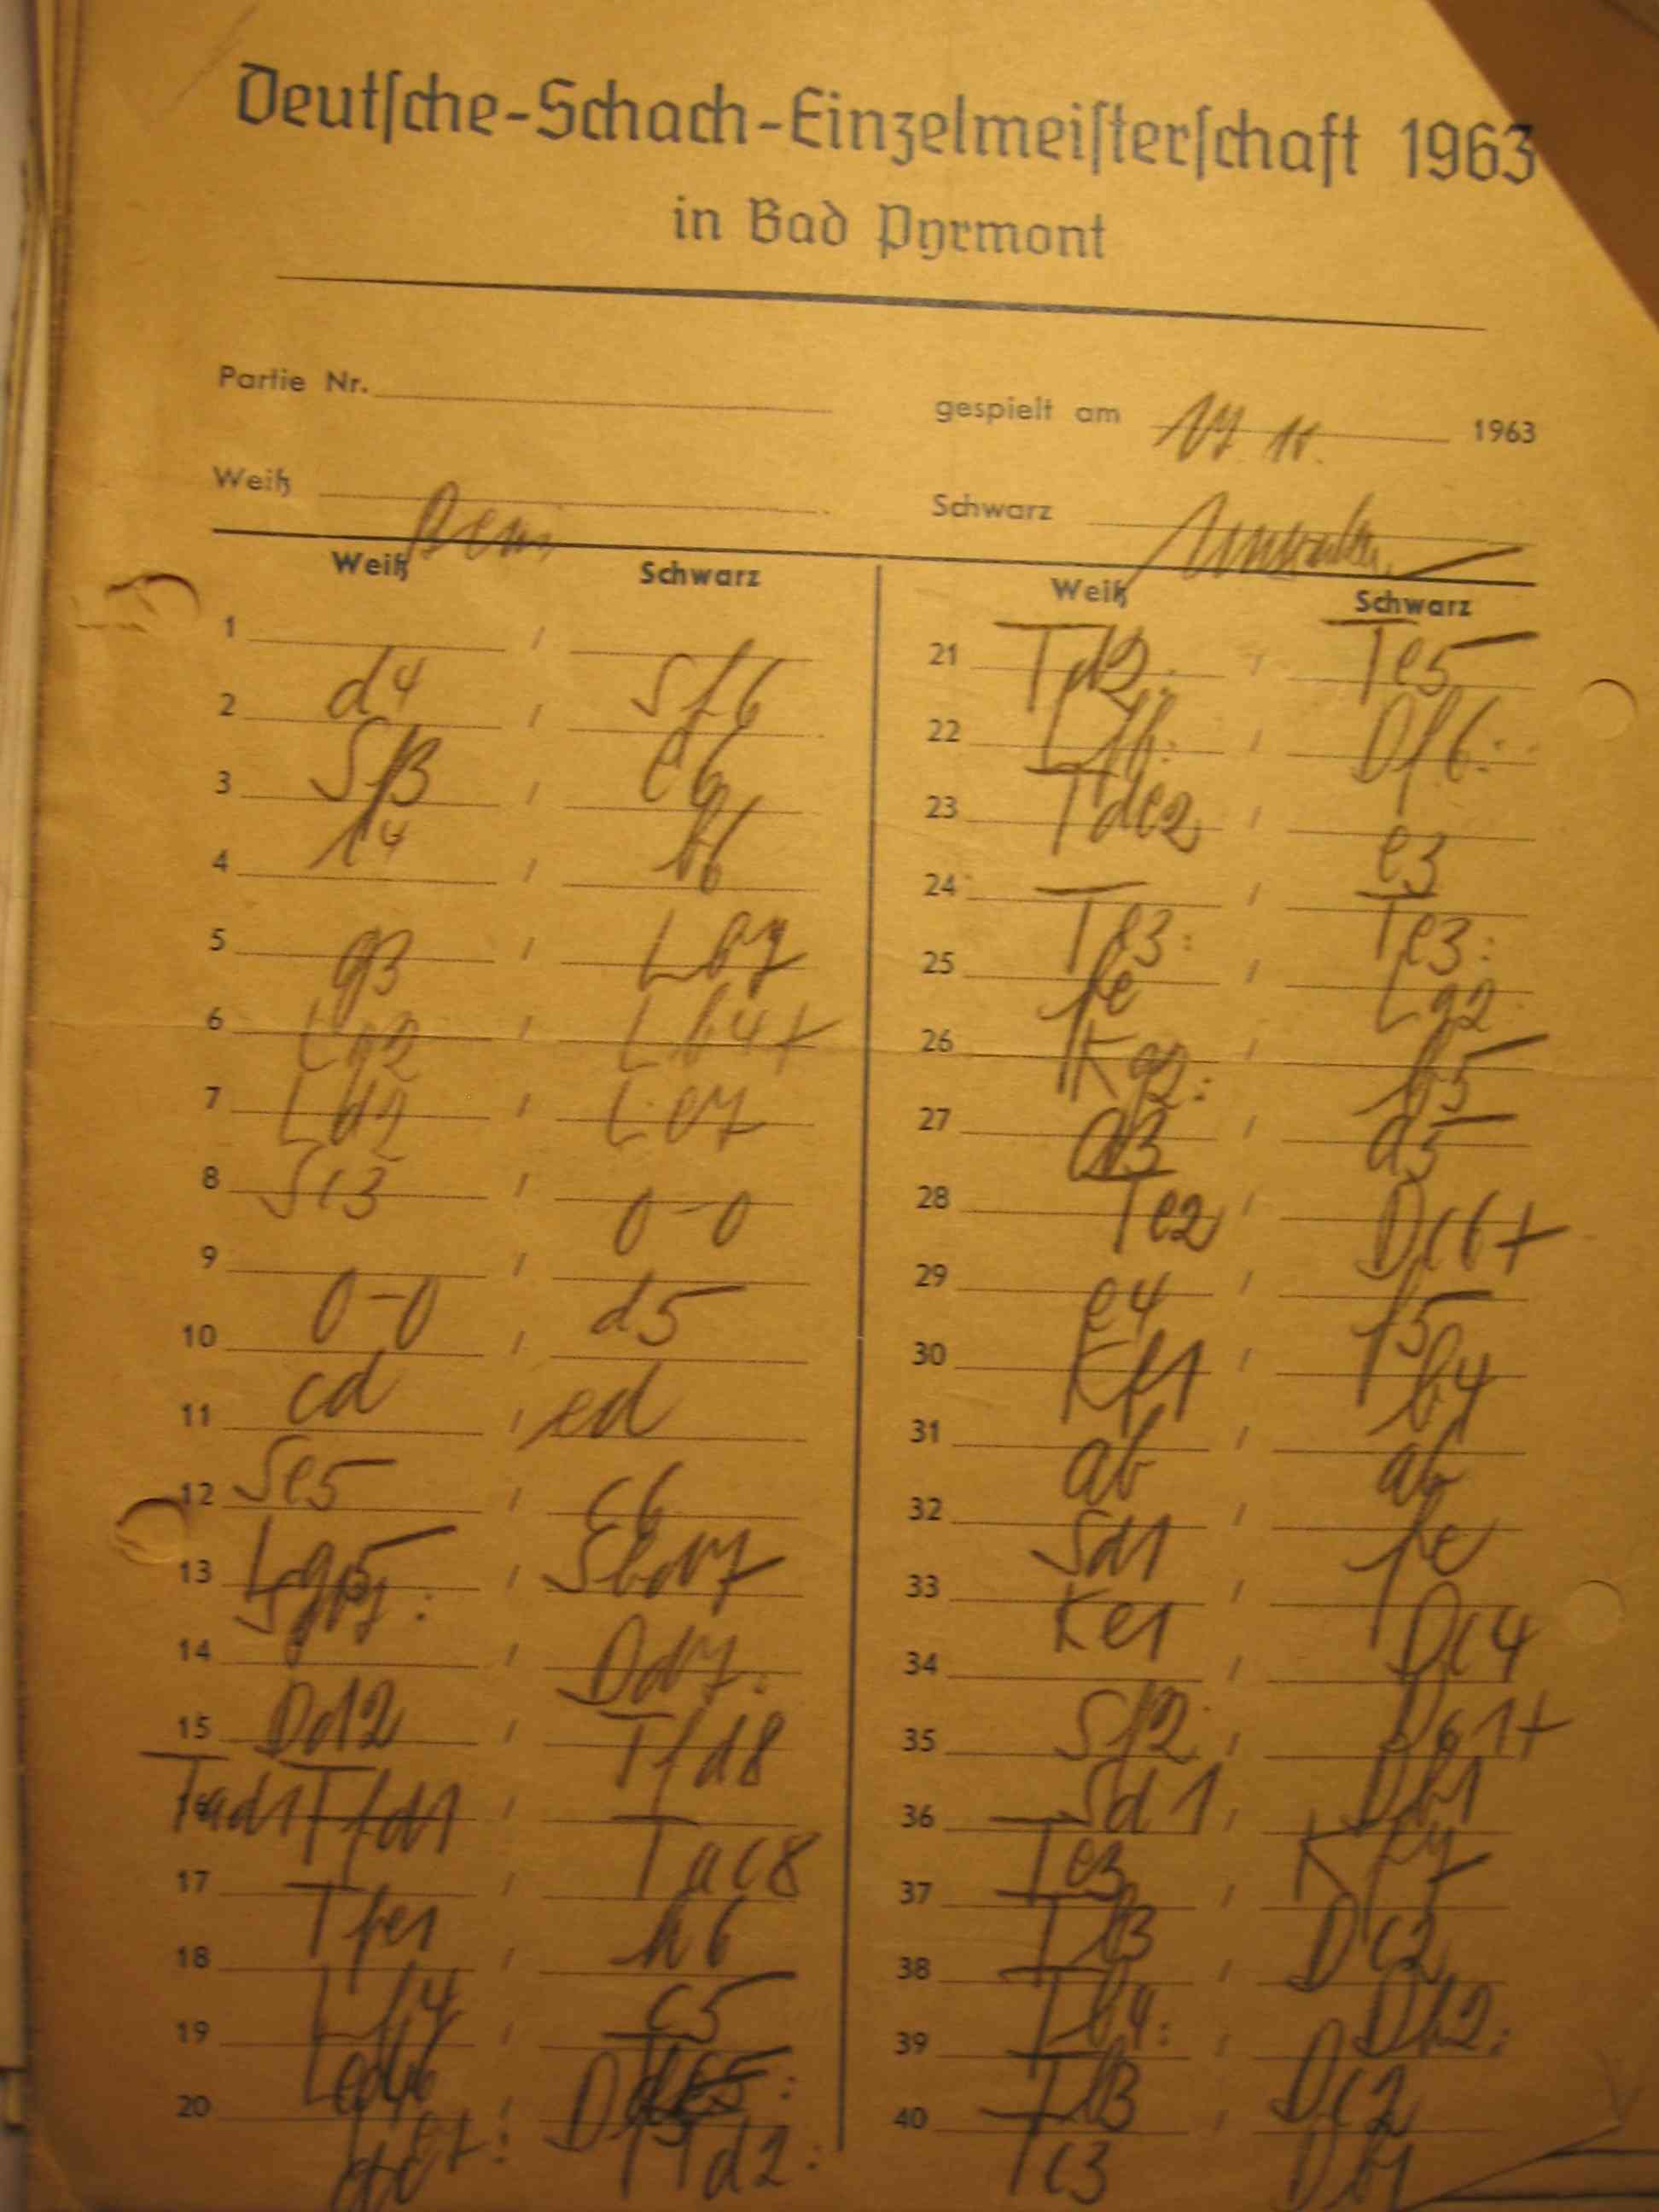 Deutsche-Schach-Einzelmeisterschaft 1963
in Bad Pyrmont
Partie Nr. gespielt am 1963
Weiß Schwarz
Weiß Schwarz Weiß Schwarz
1 d4 Sf6 21 Td2: Te5
2 Sf3 e6 22 Lf6: Df6:
3 c4 b6 23 Tde2 e3
4 g3 Lb7 24 Te3: Te3:
5 Lg2 Lb4+ 25 fe Lg2
6 Ld2 Le7 26 Kg2: b5
7 Sc3 0-0 27 a3 d5
8 0-0 d5 28 Te2 Dc6+
9 cd ed 29 e4 f5
10 Se5 c6 30 Kf1 b4
11 Lg5 Sbd7 31 ab ab
12 Sd7: Dd7: 32 Sd1 fe
13 Dd2 Tfd8 33 Ke1 Dc4
14 Tad1 Tfd1 Tac8 34 Sf2 Dg1+
15 Tfe1 h6 35 Sd1 Db1
16 Lf4 c5 36 Te3 Kf7
17 37 Tb3 Dc2
18 38 Tb4: Dh2:
19 39 Tb3 Dc2
20 Td2: 40 Tc3 Db1